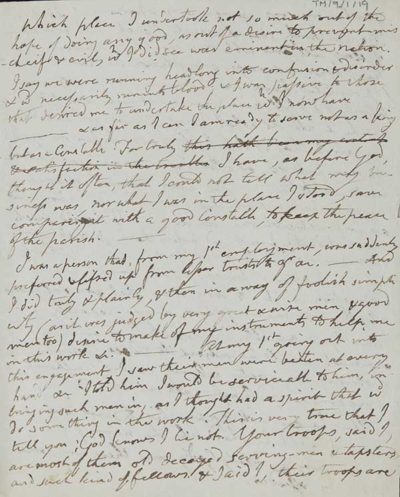 TM19/1/19
Which place I undertook not so much out of the
hope of doing any good, as out of a desire to prevent mis
chief & evil, wh I did see was eminent in the nation.
I say we were running headlong into confusion & disorder
& wd necessarily run into blood & I was passive to those
that desired me to undertake the place wh I now have
& as far as I can I am ready to serve not as a King
but as a Constable. For truly this hath been my
satisfaction in the troubles I have, as before God
thought it often, that I could not tell what my bu-
siness was, nor what I was in the place I stood, save
comparing it with a good Constable, to keep the peace
of the parish.
I was a person that from my 1st employment, was suddenly
preferred & lifted up from lesser trusts to gr. And
I did truly & plainly, & then in a way of foolish simpli
city (as it was judged by very great & wise men & good
men too) desire to make of my instruments to help me
in this work &c. At my 1st going out into
this engagement I saw their men were beaten at every
hand &c. I told him I would be serviceable to him, in
bringing such men in, as I thought had a spirit that wd
do something in the work. This is very true that I
tell you; God knows I lie not. Your troops, said I
are most of them old decayed serving-men & tapsters
and such kind of fellows & said I their troops are